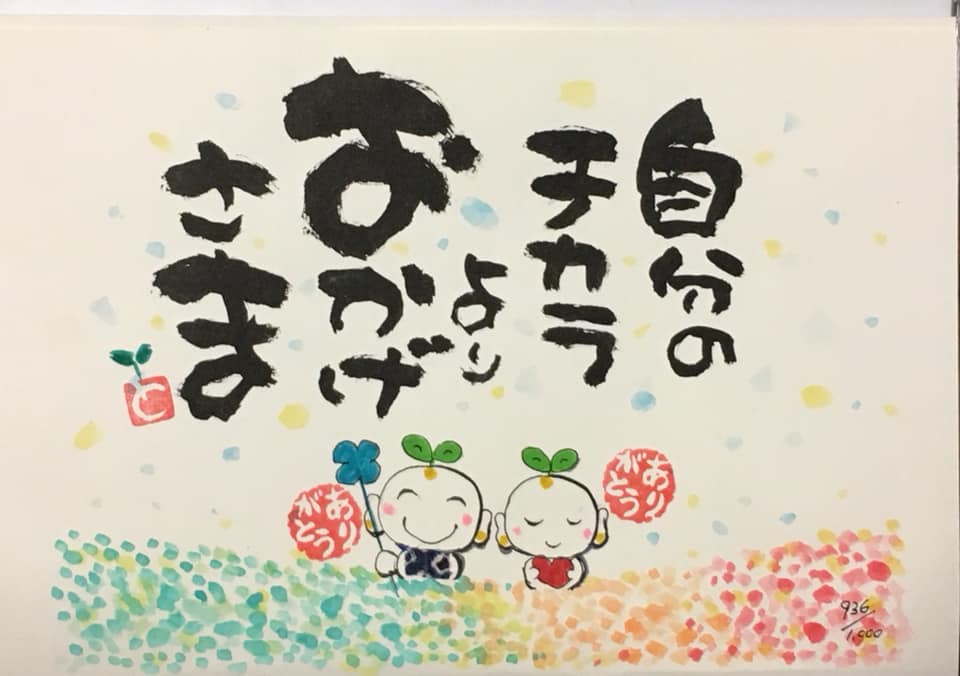 自分の
チカラ
より
おかげ
さま
と
ありがとう
ありがとう
936/1,000